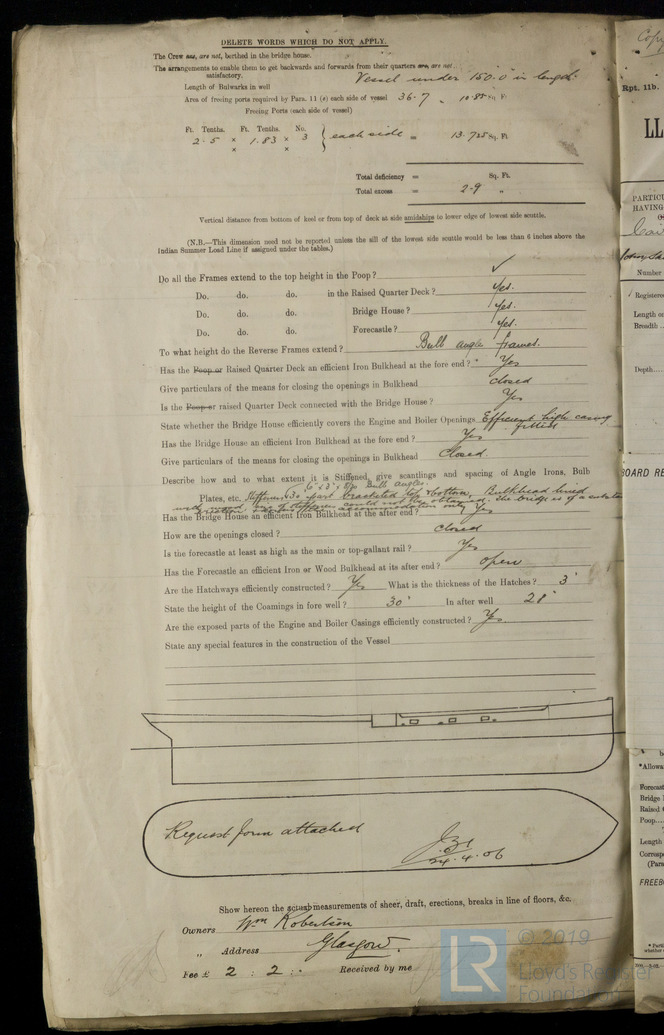 DELETE WORDS WHICH DO NOT APPLY.
The Crew are, are not, berthed in the bridge house.
The arrangements to enable them to get backwards and forwards from their quarters are, are not
satisfactory. Vessel under 150.0 in length.
Length of Bulwarks in well
Area of freeing ports required by Para. 11 (s) each side of vessel 36.7 = 10.85 Sq. Ft
Freeing Ports (each side of vessel)
Ft. Tenths. Ft. Tenths. No.
2.5 × 1.83 × 3 } each side = 13.725 Sq. Ft
× ×
Total deficiency = Sq. Ft.
Total excess = 2.9 „
Vertical distance from bottom of keel or from top of deck at side amidships to lower edge of lowest side scuttle.
(N.B.—This dimension need not be reported unless the sill of the lowest side scuttle would be less than 6 inches above the
Indian Summer Load Line if assigned under the tables.)
Do all the Frames extend to the top height in the Poop? ✓
Do. do. do. in the Raised Quarter Deck? Yes.
Do. do. do. Bridge House? Yes.
Do. do. do. Forecastle? Yes.
To what height do the Reverse Frames extend? Bulb angle frames.
Has the Poop or Raised Quarter Deck an efficient Iron Bulkhead at the fore end? Yes
Give particulars of the means for closing the openings in Bulkhead closed
Is the Poop or raised Quarter Deck connected with the Bridge House? Yes
State whether the Bridge House efficiently covers the Engine and Boiler Openings Efficient high casing
fitted
Has the Bridge House an efficient Iron Bulkhead at the fore end? Yes
Give particulars of the means for closing the openings in Bulkhead Closed
Describe how and to what extent it is Stiffened, give scantlings and spacing of Angle Irons, Bulb
Bulb angles
Plates, etc. Stiffeners 30" apart bracketed top & bottom. Bulkhead lined
Has the Bridge House an efficient Iron Bulkhead at the after end? Yes
How are the openings closed? closed
Is the forecastle at least as high as the main or top-gallant rail? Yes
Has the Forecastle an efficient Iron or Wood Bulkhead at its after end? open
Are the Hatchways efficiently constructed? Yes What is the thickness of the Hatches? 3"
State the height of the Coamings in fore well? 30" In after well 28"
Are the exposed parts of the Engine and Boiler Casings efficiently constructed? Yes.
State any special features in the construction of the Vessel
Request form attached
24.4.06
Show hereon the actual measurements of sheer, draft, erections, breaks in line of floors, &c.
Owners Wm Robertson
„ Address Glasgow.
Fee £ 2 : 2 : - Received by me
LR © 2019
Lloyd's Register
Foundation
Copy
Rpt. 11b.
LL
PARTICU
HAVING
Number
Registere
Length o
Breadth ..
Depth....
BOARD RE
*Allowa
Forecast
Bridge
Raised
Poop....
Length
Corresp
(Para
FREEB